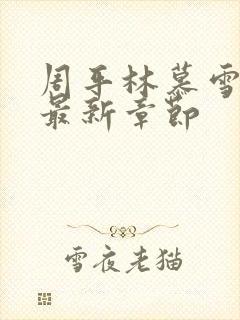 周平林慕雪
最新章节
雪夜老猫